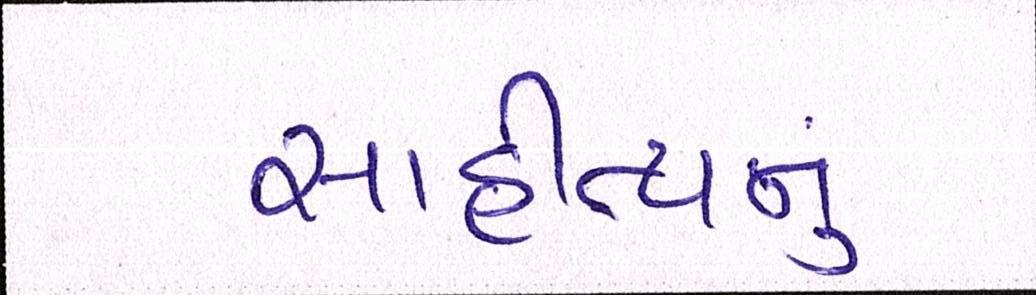 સાહીત્યનું